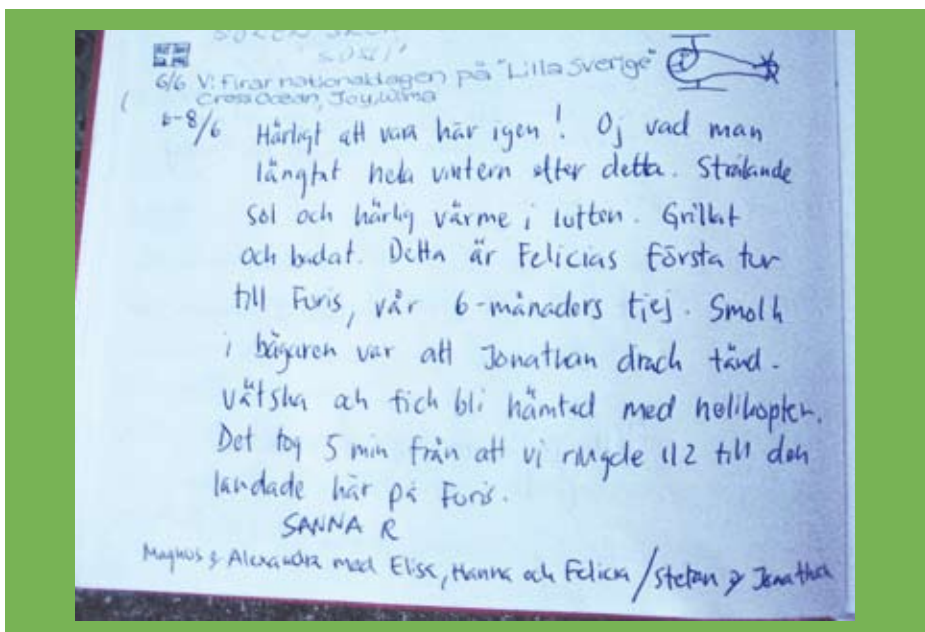 6/6 Vi firar nationaldagen på "Lilla Sverige"
Cross Ocean, Joy, Wima
6-8/6 Härligt att vara här igen! Oj vad man
längtat hela vintern efter detta. Strålande
sol och härlig värme i luften. Grillat
och badat. Detta är Felicias första tur
till Furis, vår 6-månaders tjej. Smolk
i bägaren var att Jonathan drack tänd-
vätska och fick bli hämtad med helikopter.
Det tog 5 min från att vi ringde 112 till den
landade här på Furis.
SANNA R
Magnus & Alexandra med Elise, Hanna och Felicia / Stefan & Jonathan